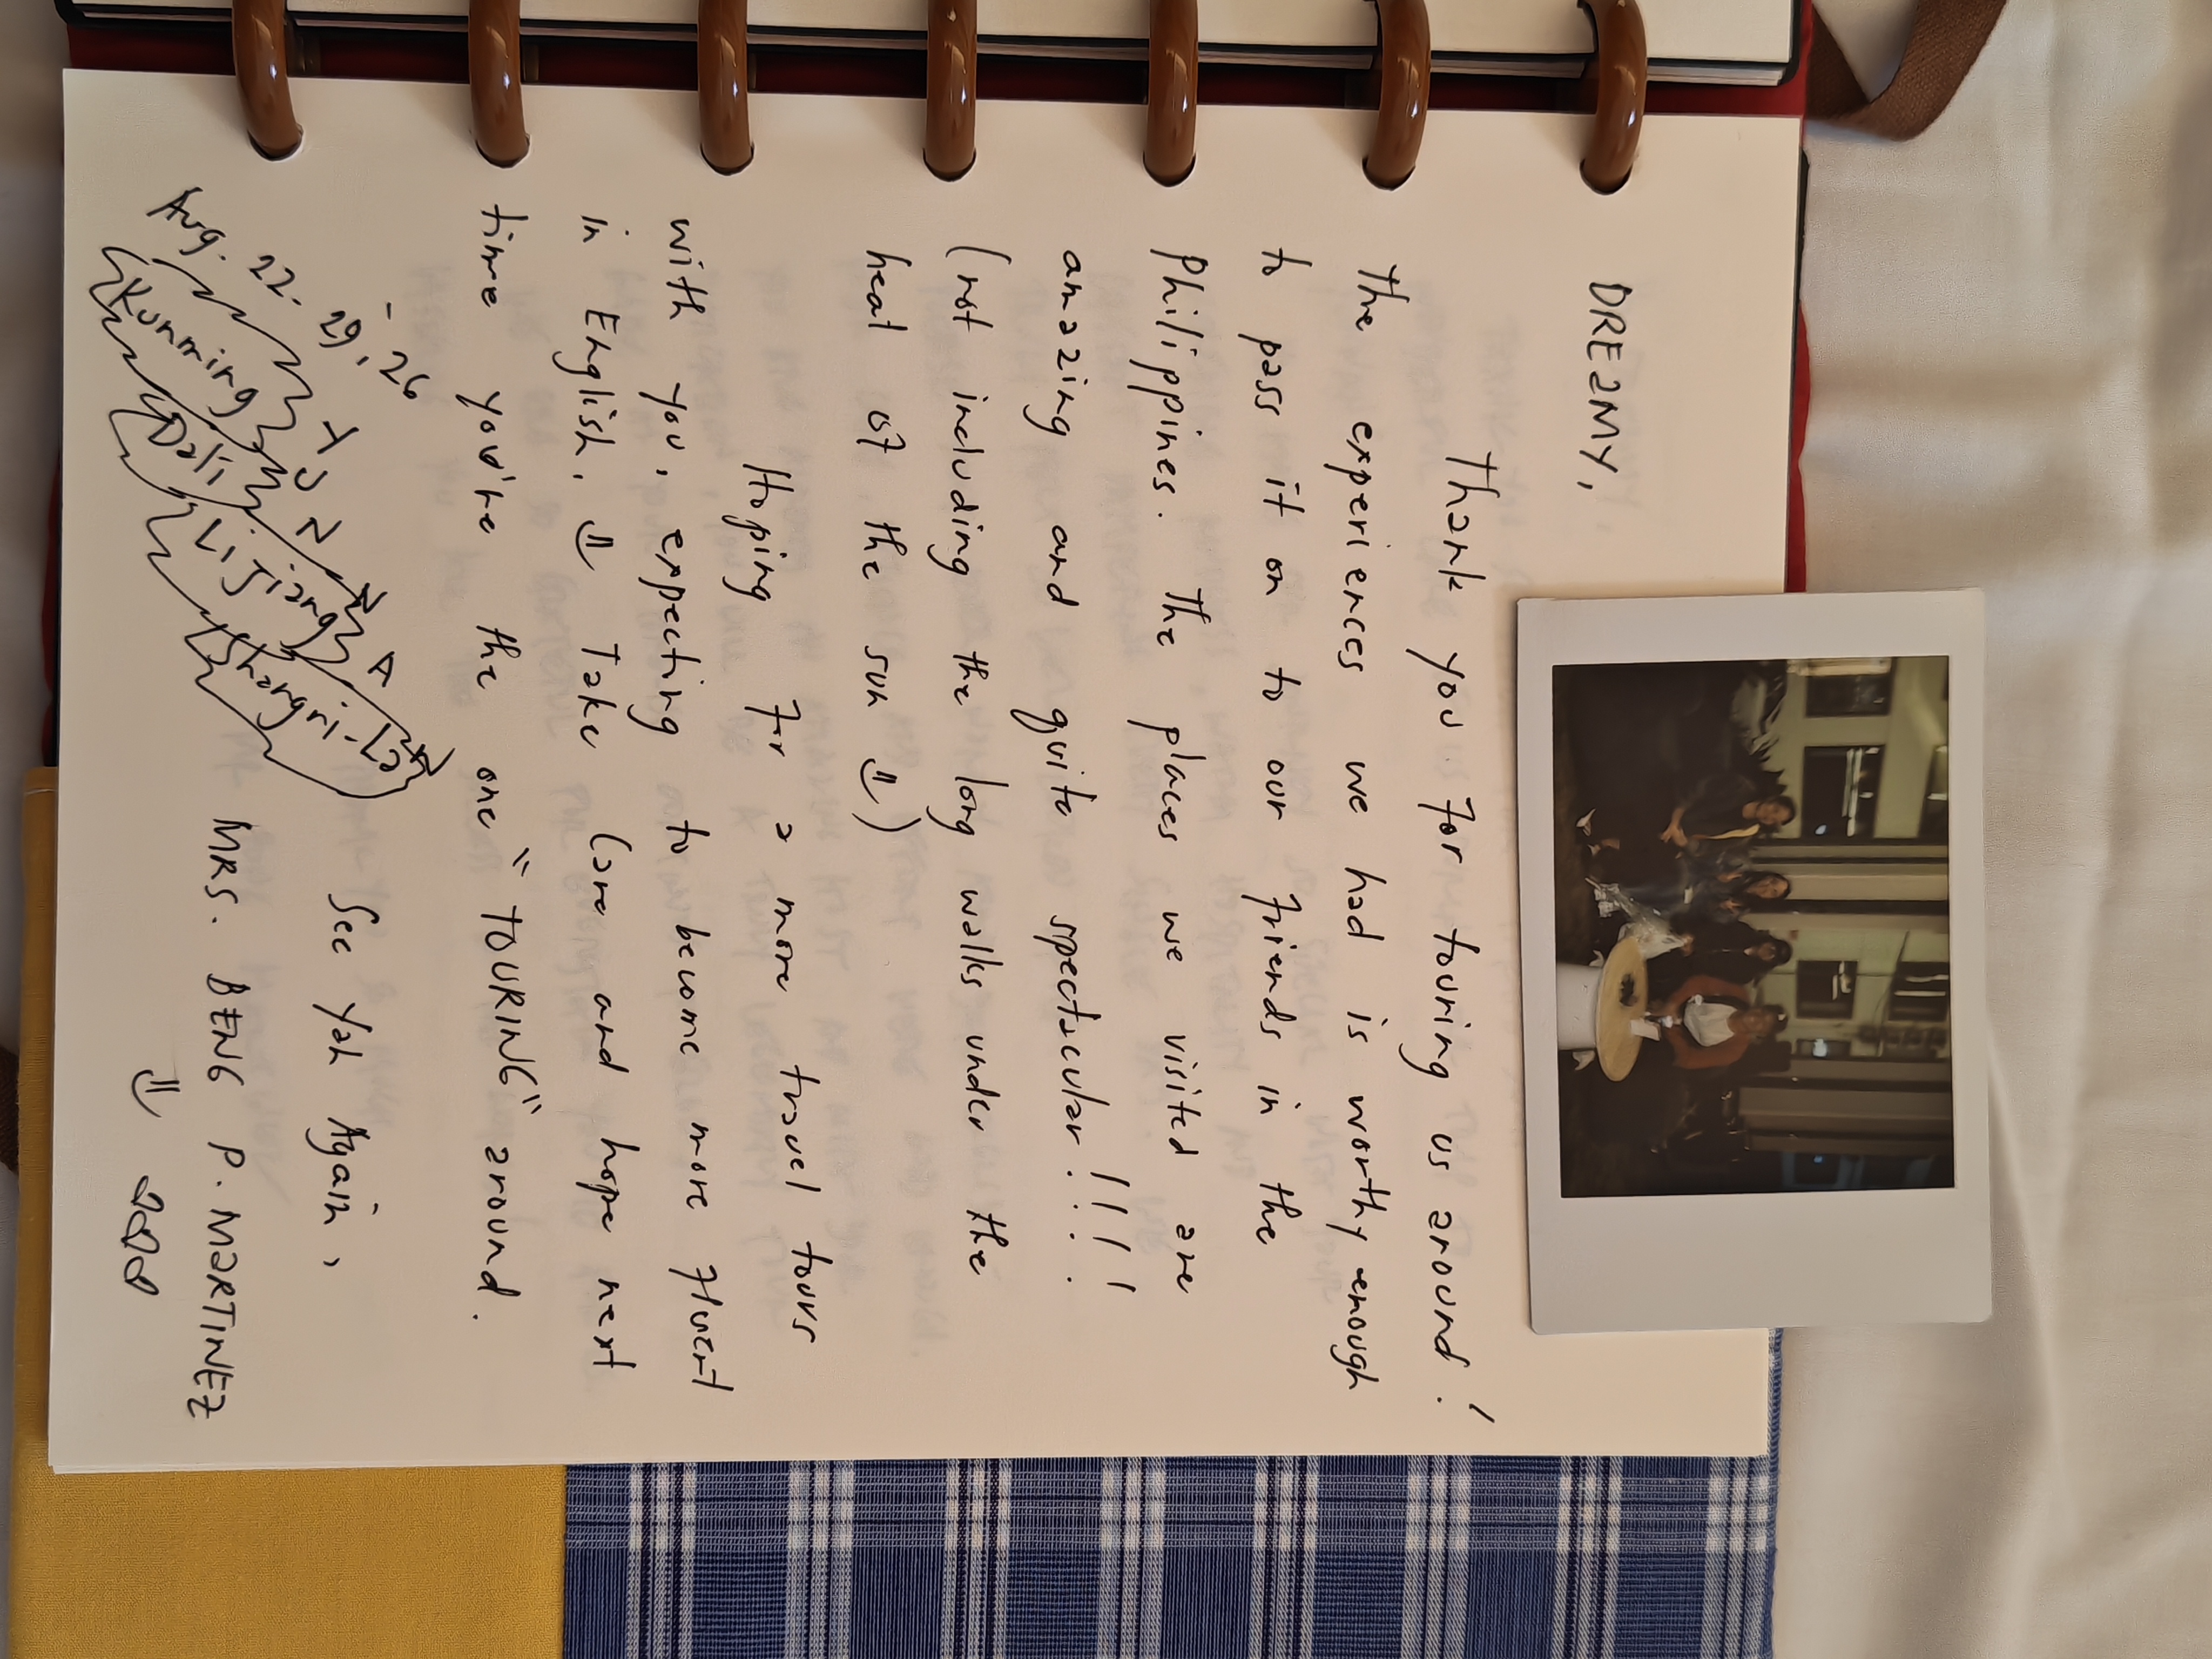 DREAMY,
Thank you for touring us around!
the experiences we had is worthy enough
to pass it on to our friends in the
Philippines. The places we visited are
amazing and quite spectacular!!!!
(not including the long walks under the
heat of the sun =))
Hoping for a more travel tours
with you, expecting to become more fluent
in English. =) Take care and hope next
time you're the one "TOURING" around.
See yah Again,
MRS. BENG P. MARTINEZ
=)
Aug. 22 - 29, 26
YUNNAN
Kunming
Dali
Lijiang
Shangri-La